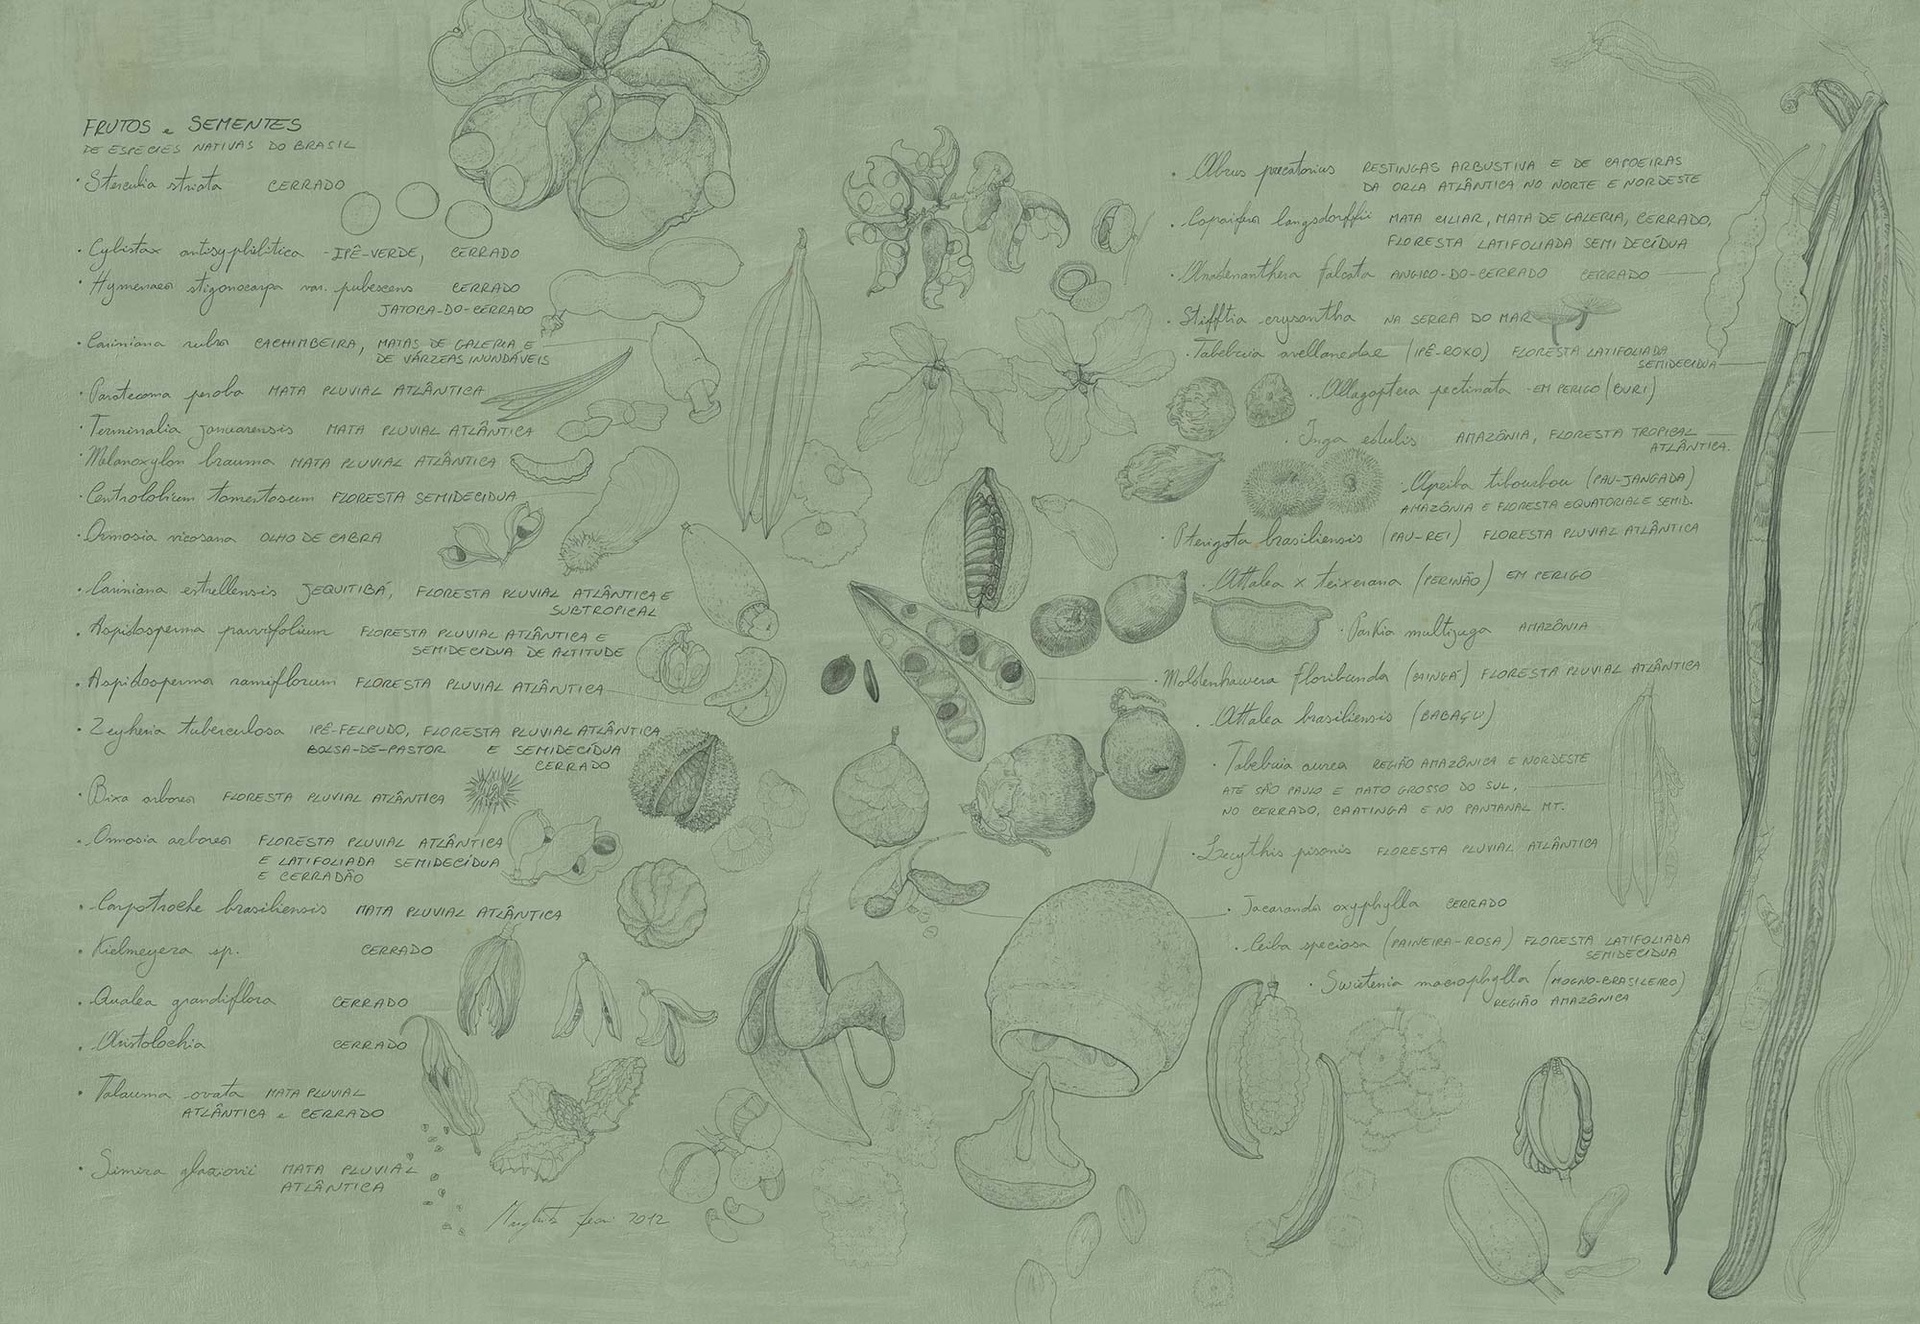 FRUTOS e SEMENTES
DE ESPECIES NATIVAS DO BRASIL
· Sterculia striata CERRADO
· Cybistax antisyphilitica - IPÊ-VERDE, CERRADO
· Hymenaea stigonocarpa var. pubescens CERRADO
JATOBA-DO-CERRADO
· Cariniana rubra CACHIMBEIRA, MATAS DE GALERIA E
DE VÁRZEAS INUNDÁVEIS
· Paratecoma peroba MATA PLUVIAL ATLÂNTICA
· Terminalia januarensis MATA PLUVIAL ATLÂNTICA
· Melanoxylon brauma MATA PLUVIAL ATLÂNTICA
· Centrolobium tomentosum FLORESTA SEMIDECIDUA
· Ormosia vicosana OLHO DE CABRA
· Cariniana estrellensis JEQUITIBÁ, FLORESTA PLUVIAL ATLÂNTICA E
SUBTROPICAL
· Aspidosperma parvifolium FLORESTA PLUVIAL ATLÂNTICA E
SEMIDECIDUA DE ALTITUDE
· Aspidosperma ramiflorum FLORESTA PLUVIAL ATLÂNTICA
· Zeyheria tuberculosa IPÊ-FELPUDO, FLORESTA PLUVIAL ATLÂNTICA
BOLSA-DE-PASTOR E SEMIDECÍDUA
CERRADO
· Bixa arborea FLORESTA PLUVIAL ATLÂNTICA
· Ormosia arborea FLORESTA PLUVIAL ATLÂNTICA
E LATIFOLIADA SEMIDECÍDUA
E CERRADÃO
· Carpotroche brasiliensis MATA PLUVIAL ATLÂNTICA
· Kielmeyera sp. CERRADO
· Qualea grandiflora CERRADO
· Aristolochia CERRADO
· Talauma ovata MATA PLUVIAL
ATLÂNTICA e CERRADO
· Simira glaziovii MATA PLUVIAL
ATLÂNTICA
2012
· Abrus precatorius RESTINGAS ARBUSTIVA E DE CAPOEIRAS
DA ORLA ATLÂNTICA NO NORTE E NORDESTE
· Copaifera langsdorffii MATA CILIAR, MATA DE GALERIA, CERRADO,
FLORESTA LATIFOLIADA SEMIDECÍDUA
· Anadenanthera falcata ANGICO-DO-CERRADO CERRADO
· Stifftia crysantha NA SERRA DO MAR
· Tabebuia avellanedae (IPÊ-ROXO) FLORESTA LATIFOLIADA
SEMIDECIDUA
· Allagoptera pectinata - EM PERIGO (BURI)
· Inga edulis AMAZÔNIA, FLORESTA TROPICAL
ATLÂNTICA.
· Apeiba tibourbou (PAU-JANGADA)
AMAZÔNIA E FLORESTA EQUATORIAL E SEMID.
· Pterigota brasiliensis (PAU-REI) FLORESTA PLUVIAL ATLÂNTICA
· Attalea x teixerana (PERINÃO) EM PERIGO
· Parkia multijuga AMAZÔNIA
· Moldenhawera floribunda FLORESTA PLUVIAL ATLÂNTICA
· Attalea brasiliensis (BABAÇU)
· Tabebuia aurea REGIÃO AMAZÔNICA E NORDESTE
ATÉ SÃO PAULO E MATO GROSSO DO SUL,
NO CERRADO, CAATINGA E NO PANTANAL MT.
· Lecythis pisonis FLORESTA PLUVIAL ATLÂNTICA
· Jacaranda oxyphylla CERRADO
· Ceiba speciosa (PAINEIRA-ROSA) FLORESTA LATIFOLIADA
SEMIDECIDUA
· Swietenia macrophylla (MOGNO-BRASILEIRO)
REGIÃO AMAZÔNICA